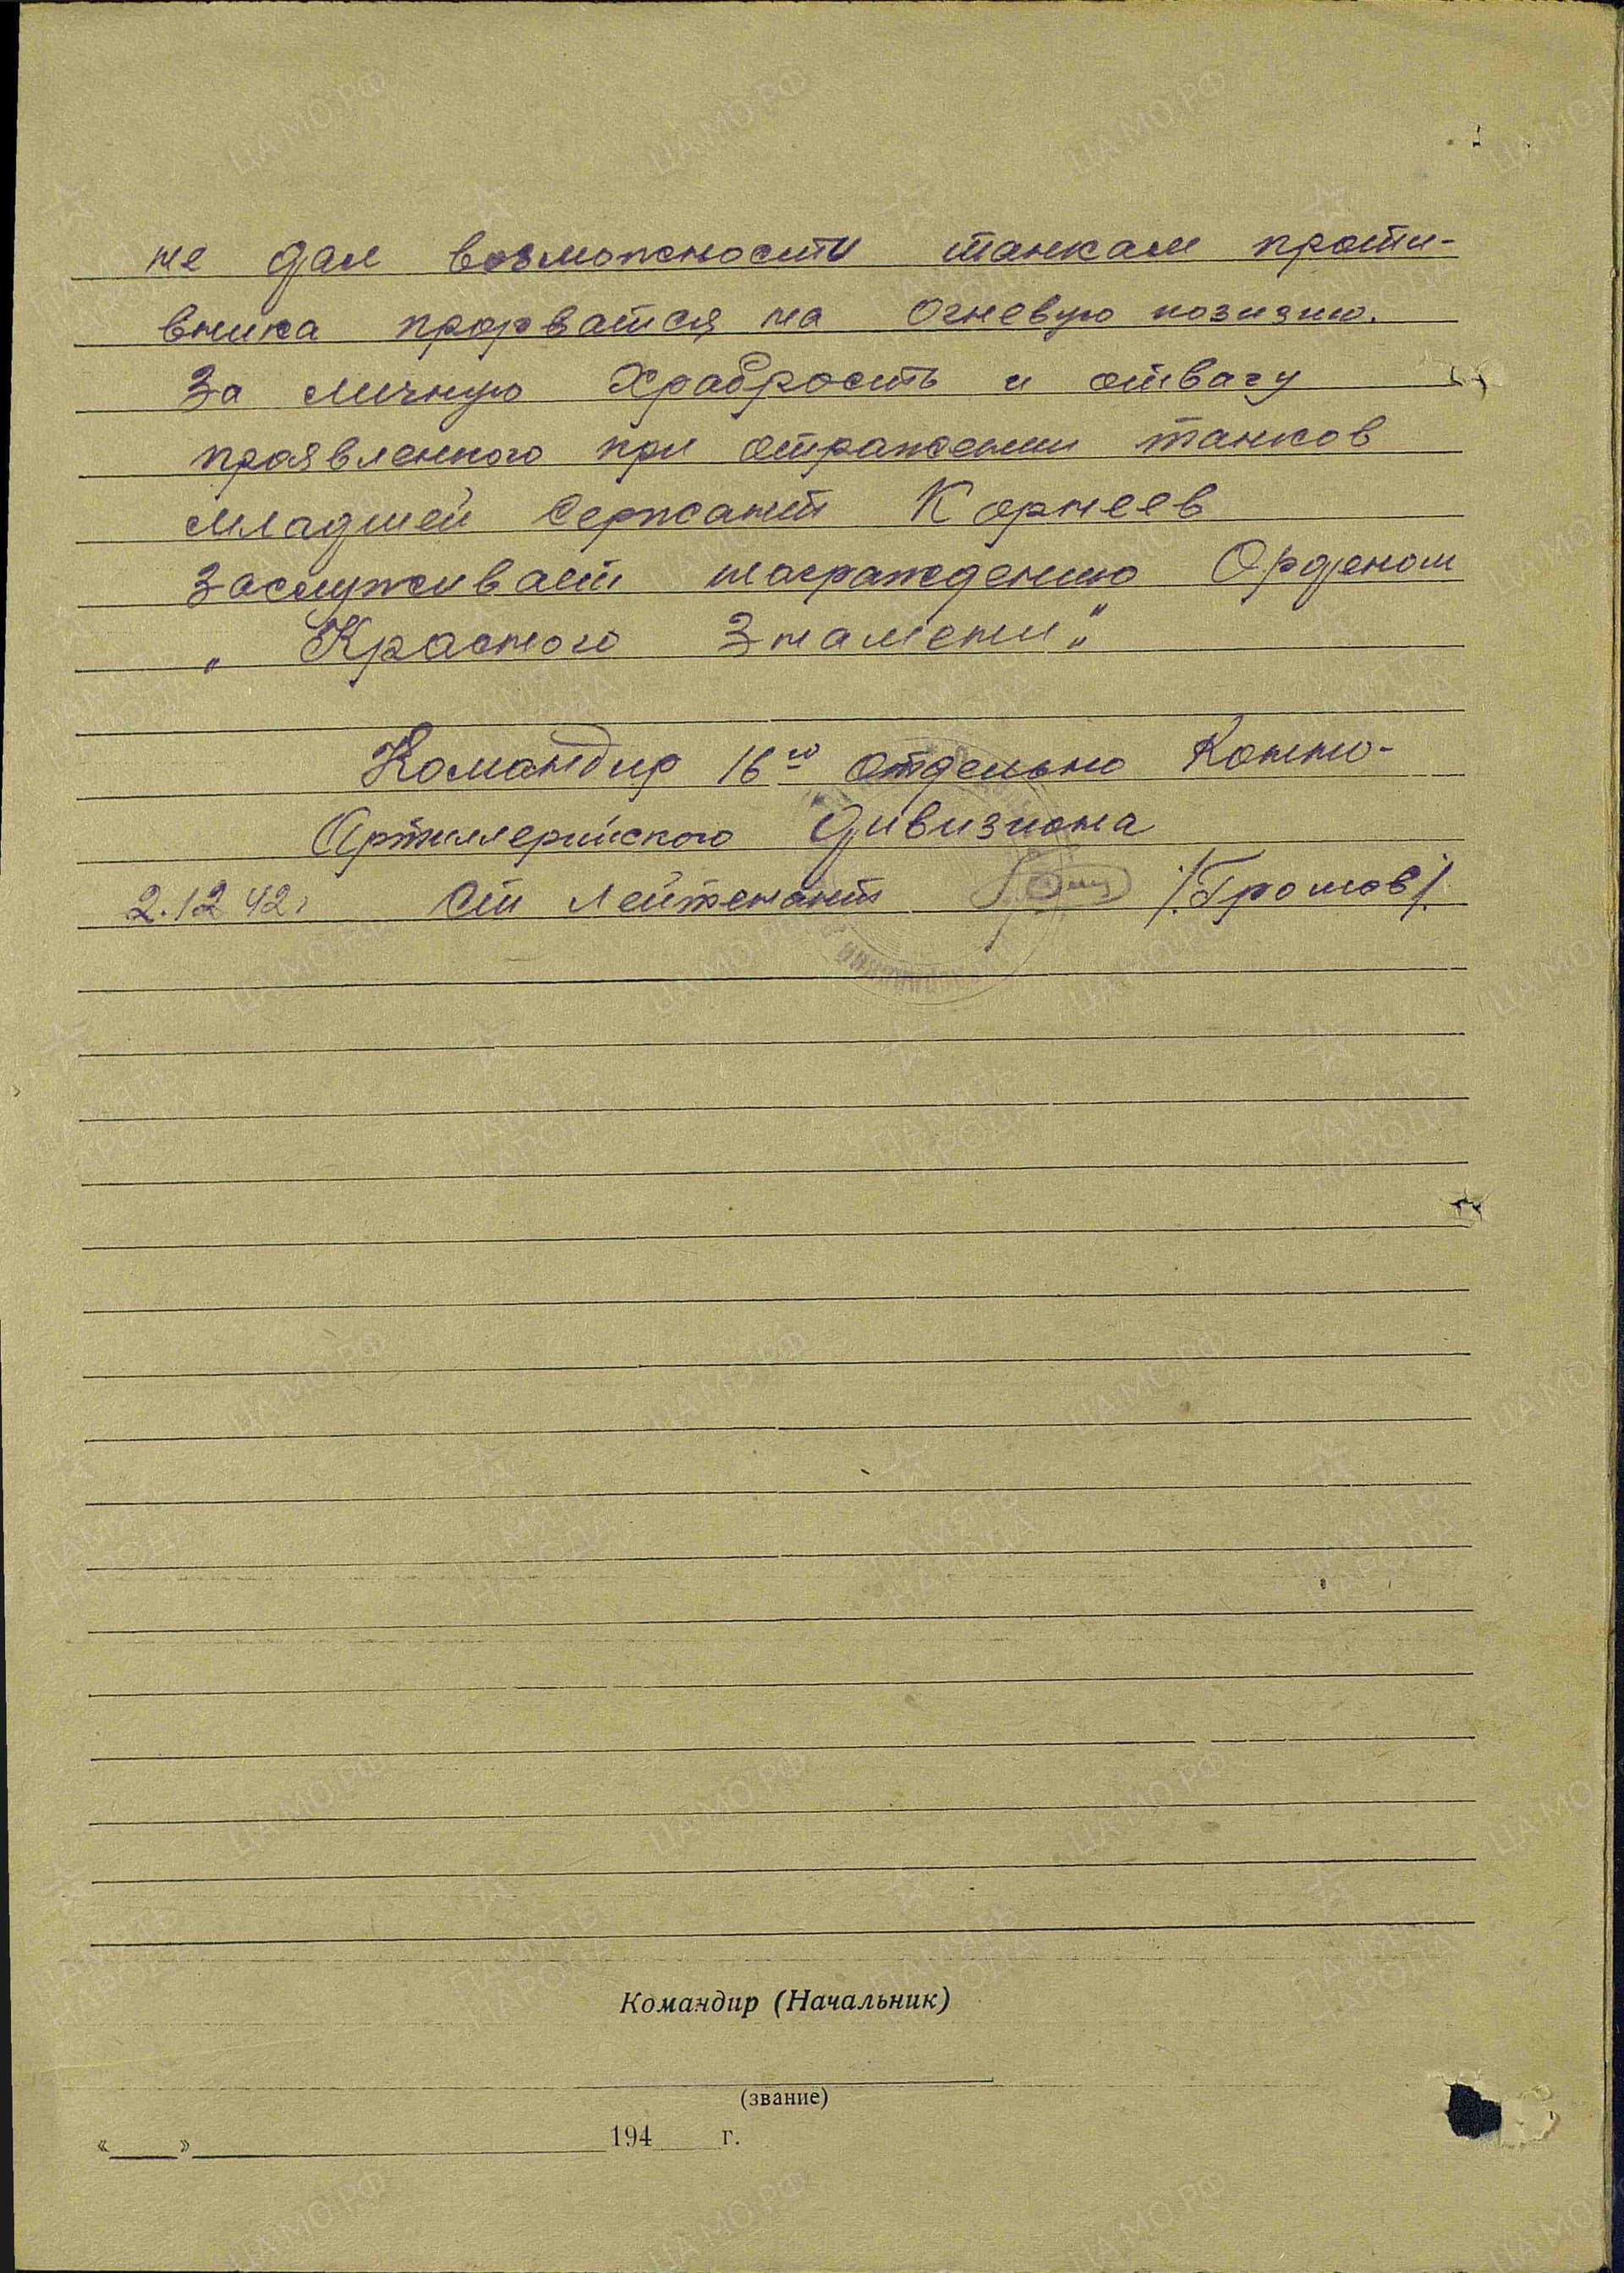 не дал возможности танкам проти-
вника прорватся на огневую позизию.
За личную Храбрость и отвагу
проявленного при отражении танков
младшей Сержант Корнеев
Заслуживает награждению Орденом
„Красного Знамени"
Командир 16го отдельно Конно-
Артиллерийского Дивизиона
2.12 42г Ст Лейтенант /Громов/.
Командир (Начальник)
(звание)
« » 194 г.